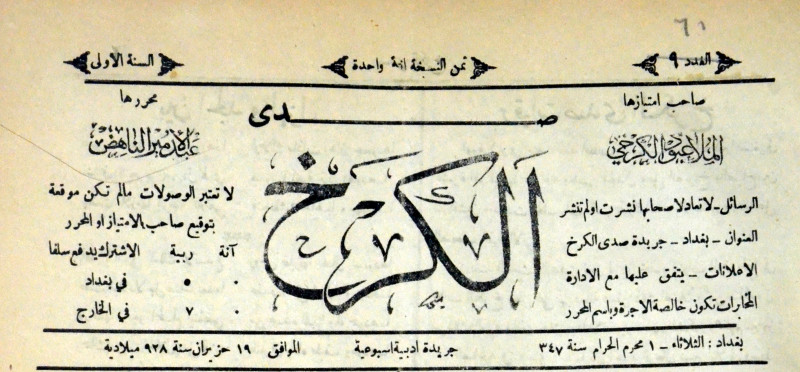 ٦١
العدد ٩
ثمن النسخة انة واحدة
السنة الأولى
صاحب امتيازها
الملا عبود الكرخي
صدى
الكرخ
محررها
عبد الامير الناهض
الرسائل – لا تعاد لاصحابها نشرت اولم تنشر
العنوان – بغداد – جريدة صدى الكرخ
الاعلانات – يتفق عليها مع الادارة
المخابرات تكون خالصة الاجرة وباسم المحرر
لا تعتبر الوصولات مالم تكن موقعة
بتوقيع صاحب الامتياز او المحرر
آنة ربية الاشتراك يدفع سلفا
٠ ٥ في بغداد
٠ ٧ في الخارج
بغداد : الثلاثاء – ١ محرم الحرام سنة ٣٤٧
جريدة ادبية اسبوعية
الموافق ١٩ حزيران سنة ٩٢٨ ميلادية